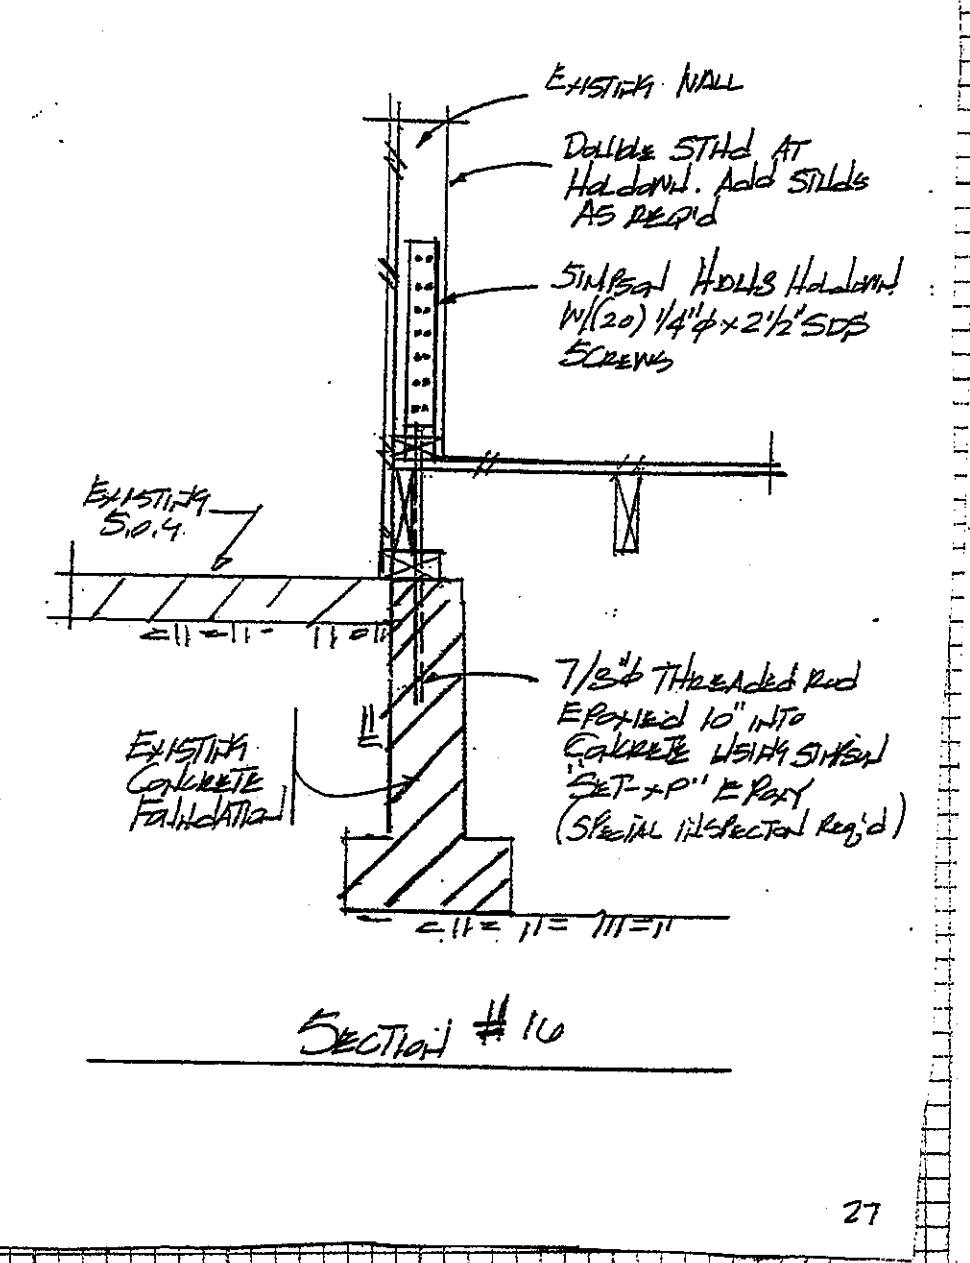 EXISTING WALL
DOUBLE STUD AT
HOLDOWN. ADD STUDS
AS REQ'D
SIMPSON HDU8 HOLDOWN
W/(20) 1/4"φ x 2 1/2" SDS
SCREWS
EXISTING
S.O.G.
7/8"φ THREADED ROD
EPOXIED 10" INTO
CONCRETE USING SIMPSON
"SET-XP" EPOXY
(SPECIAL INSPECTION REQ'D)
EXISTING
CONCRETE
FOUNDATION
SECTION # 16
27